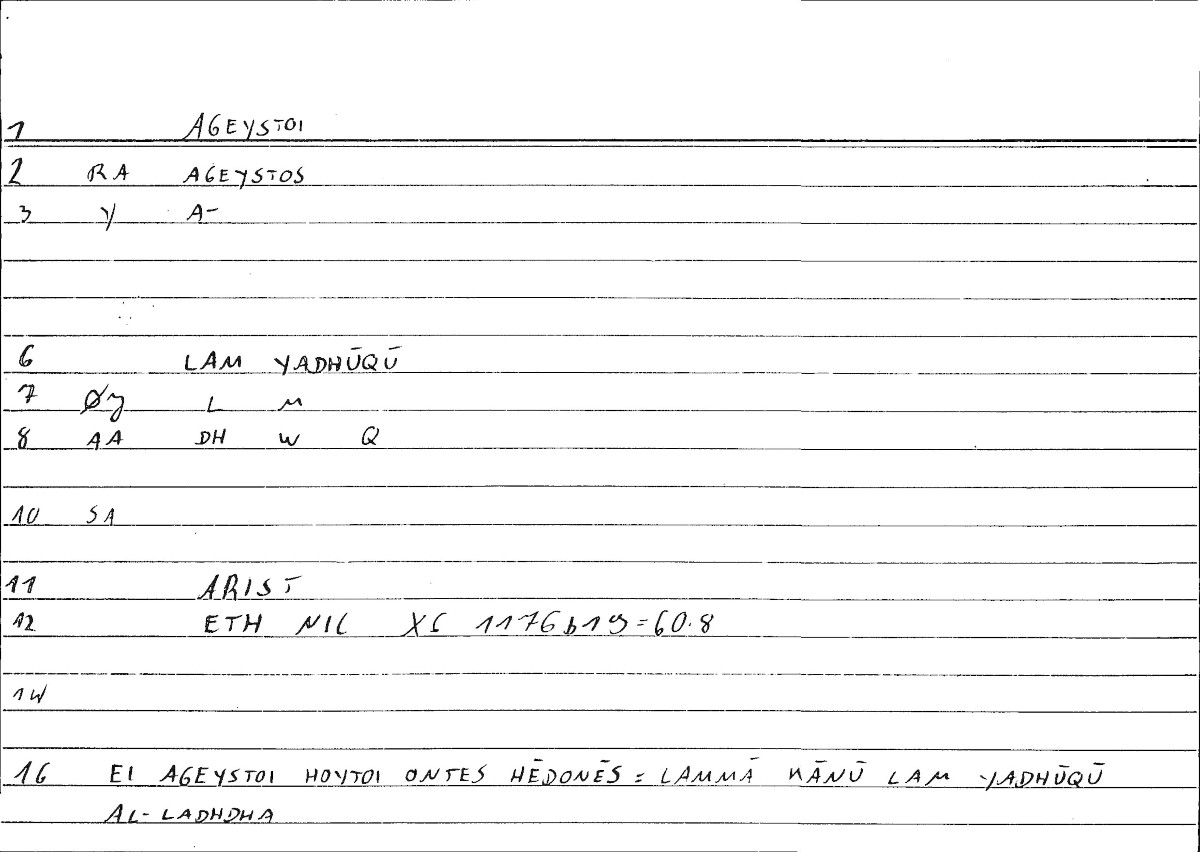 1 AGEYSTOI
2 RA AGEYSTOS
3 Y A-
6 LAM YADHŪQŪ
7 L M
8 AA DH W Q
10 SA
11 ARIST
12 ETH NIC X6 1176b19=60.8
14
16 EI AGEYSTOI HOYTOI ONTES HĒDONĒS = LAMMĀ KĀNŪ LAM YADHŪQŪ
AL-LADHDHA